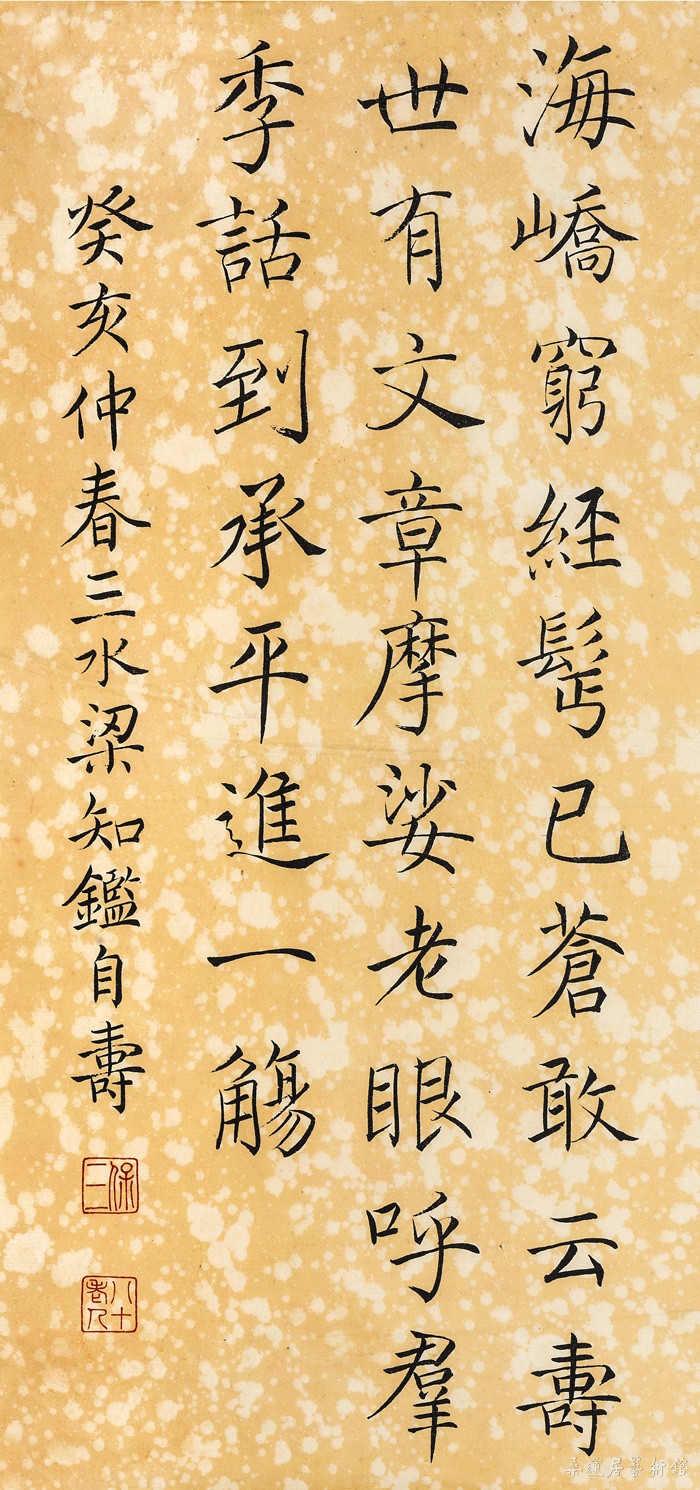 海嶠窮經髩已蒼敢云壽
世有文章摩娑老眼呼羣
季話到承平進一觴
癸亥仲春三水梁知鑑自壽
保三
八十老人
桑蓮居藝術館